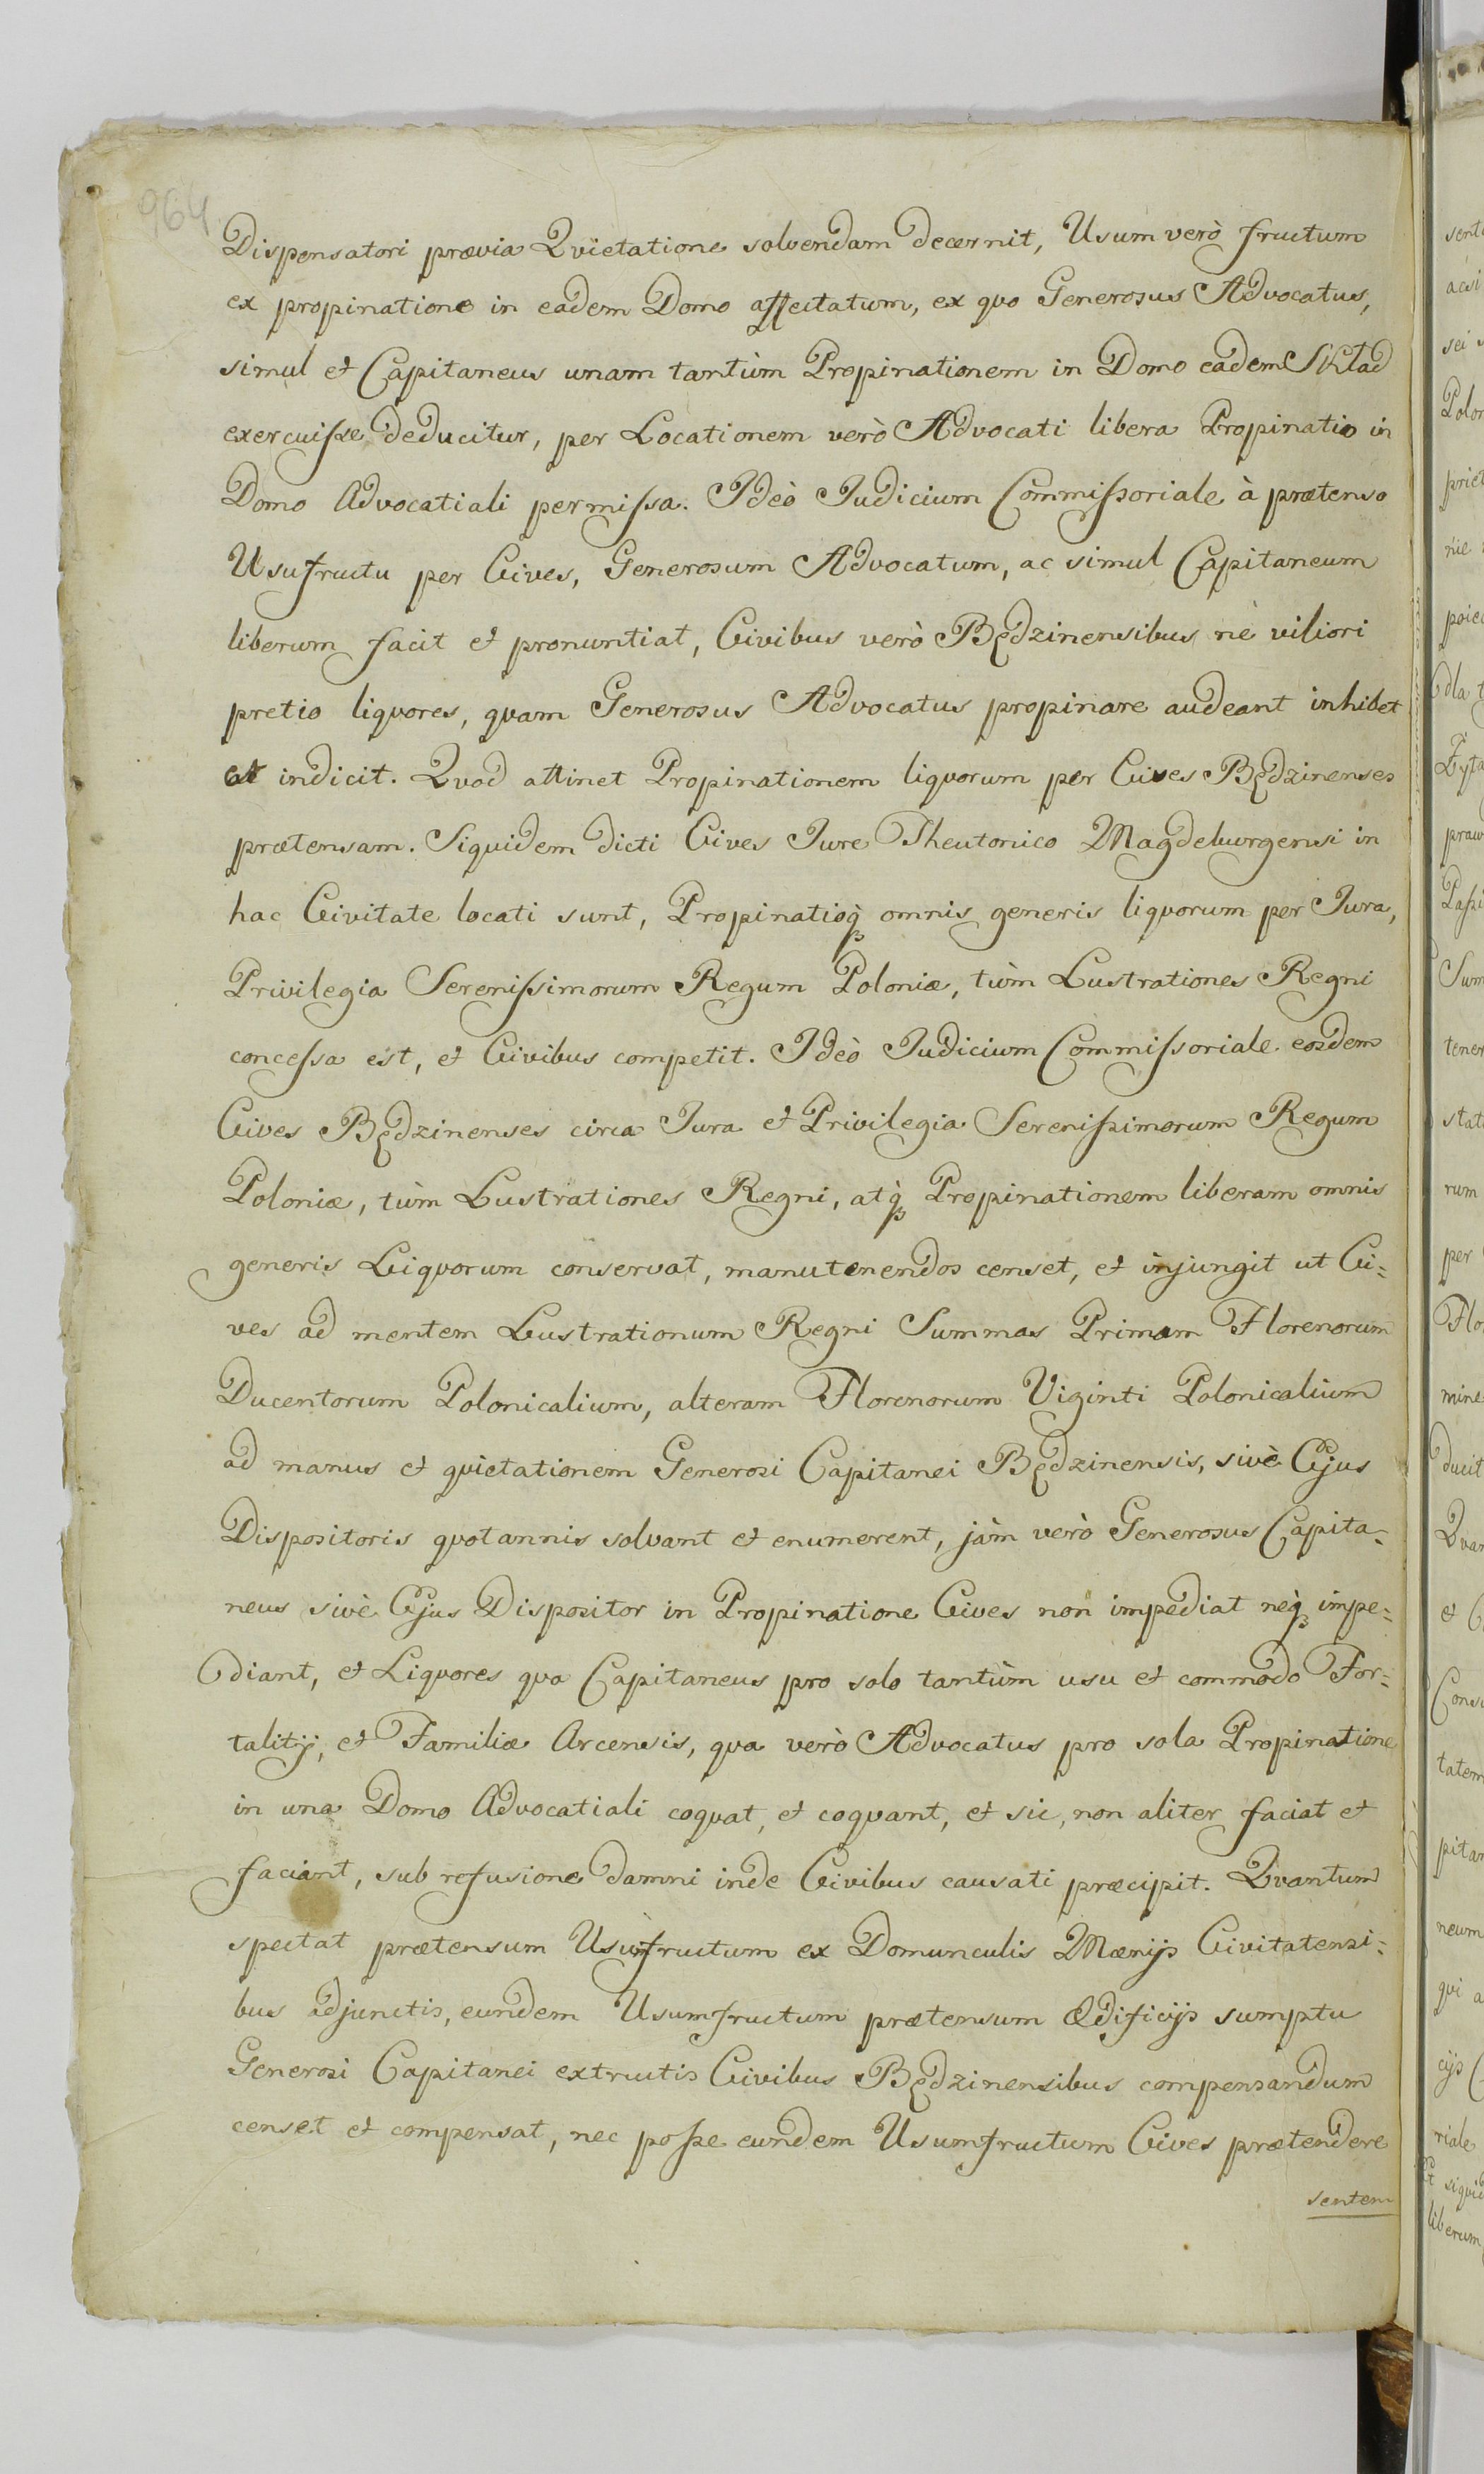 964
Dispensatori prævia Qvietatione solvendam decernit, Usum verò fructum
ex propinatione in eadem Domo affectatum, ex qvo Generosus Advocatus,
simul et Capitaneus unam tantùm Propinationem in Domo eadem Skład
exercuisse deducitur, per Locationem verò Advocati libera Propinatio in
Domo Advocatiali permissa. Ideò Judicium Commissoriale à prætenso
Usufructu per Cives, Generosum Advocatum, ac simul Capitaneum
liberum facit et pronuntiat, Civibus verò Będzinensibus nè viliori
pretio liqvores, qvam Generosus Advocatus propinare audeant inhibet
et indicit. Qvod attinet Propinationem liqvorum per Cives Będzinenses
prætensam. Siqvidem dicti Cives Jure Theutonico Magdeburgensi in
hac Civitate locati sunt, Propinatioq̀ȝ omnis generis liqvorum per Jura,
Privilegia Serenissimorum Regum Poloniæ, tùm Lustrationes Regni
concessa est, et Civibus competit. Ideò Judicium Commissoriale eosdem
Cives Będzinenses circa Jura et Privilegia Serenissimorum Regum
Poloniæ, tùm Lustrationes Regni, atq̀ȝ Propinationem liberam omnis
generis Liqvorum conservat, manutenendos censet, et injungit ut Ci=
ves ad mentem Lustrationum Regni Summas Primam Florenorum
Ducentorum Polonicalium, alteram Florenorum Viginti Polonicalium
ad manus et qvietationem Generosi Capitanei Będzinensis, sivè Ejus
Dispositoris qvotannis solvant et enumerent, jàm verò Generosus Capita=
neus sivè Ejus Dispositor in Propinatione Cives non impediat neq̀ȝ impe=
diant, et Liqvores qva Capitaneus pro solo tantùm usu et commodo For=
talitij, et Familiæ Arcensis, qva verò Advocatus pro sola Propinatione
in una Domo Advocatiali coqvat, et coqvant, et sic, non aliter faciat et
faciant, sub refusione damni inde Civibus causati præcipit. Qvantum
spectat prætensum Usumfructum ex Domunculis Mænijs Civitatensi=
bus adjunctis, eundem Usumfructum prætensum Ædificijs sumptu
Generosi Capitanei extructis Civibus Będzinensibus compensandum
censet et compensat, nec posse eundem Usumfructum Cives prætendere
sentem